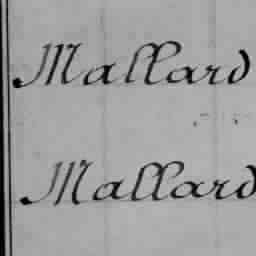 Mallard
Mallard